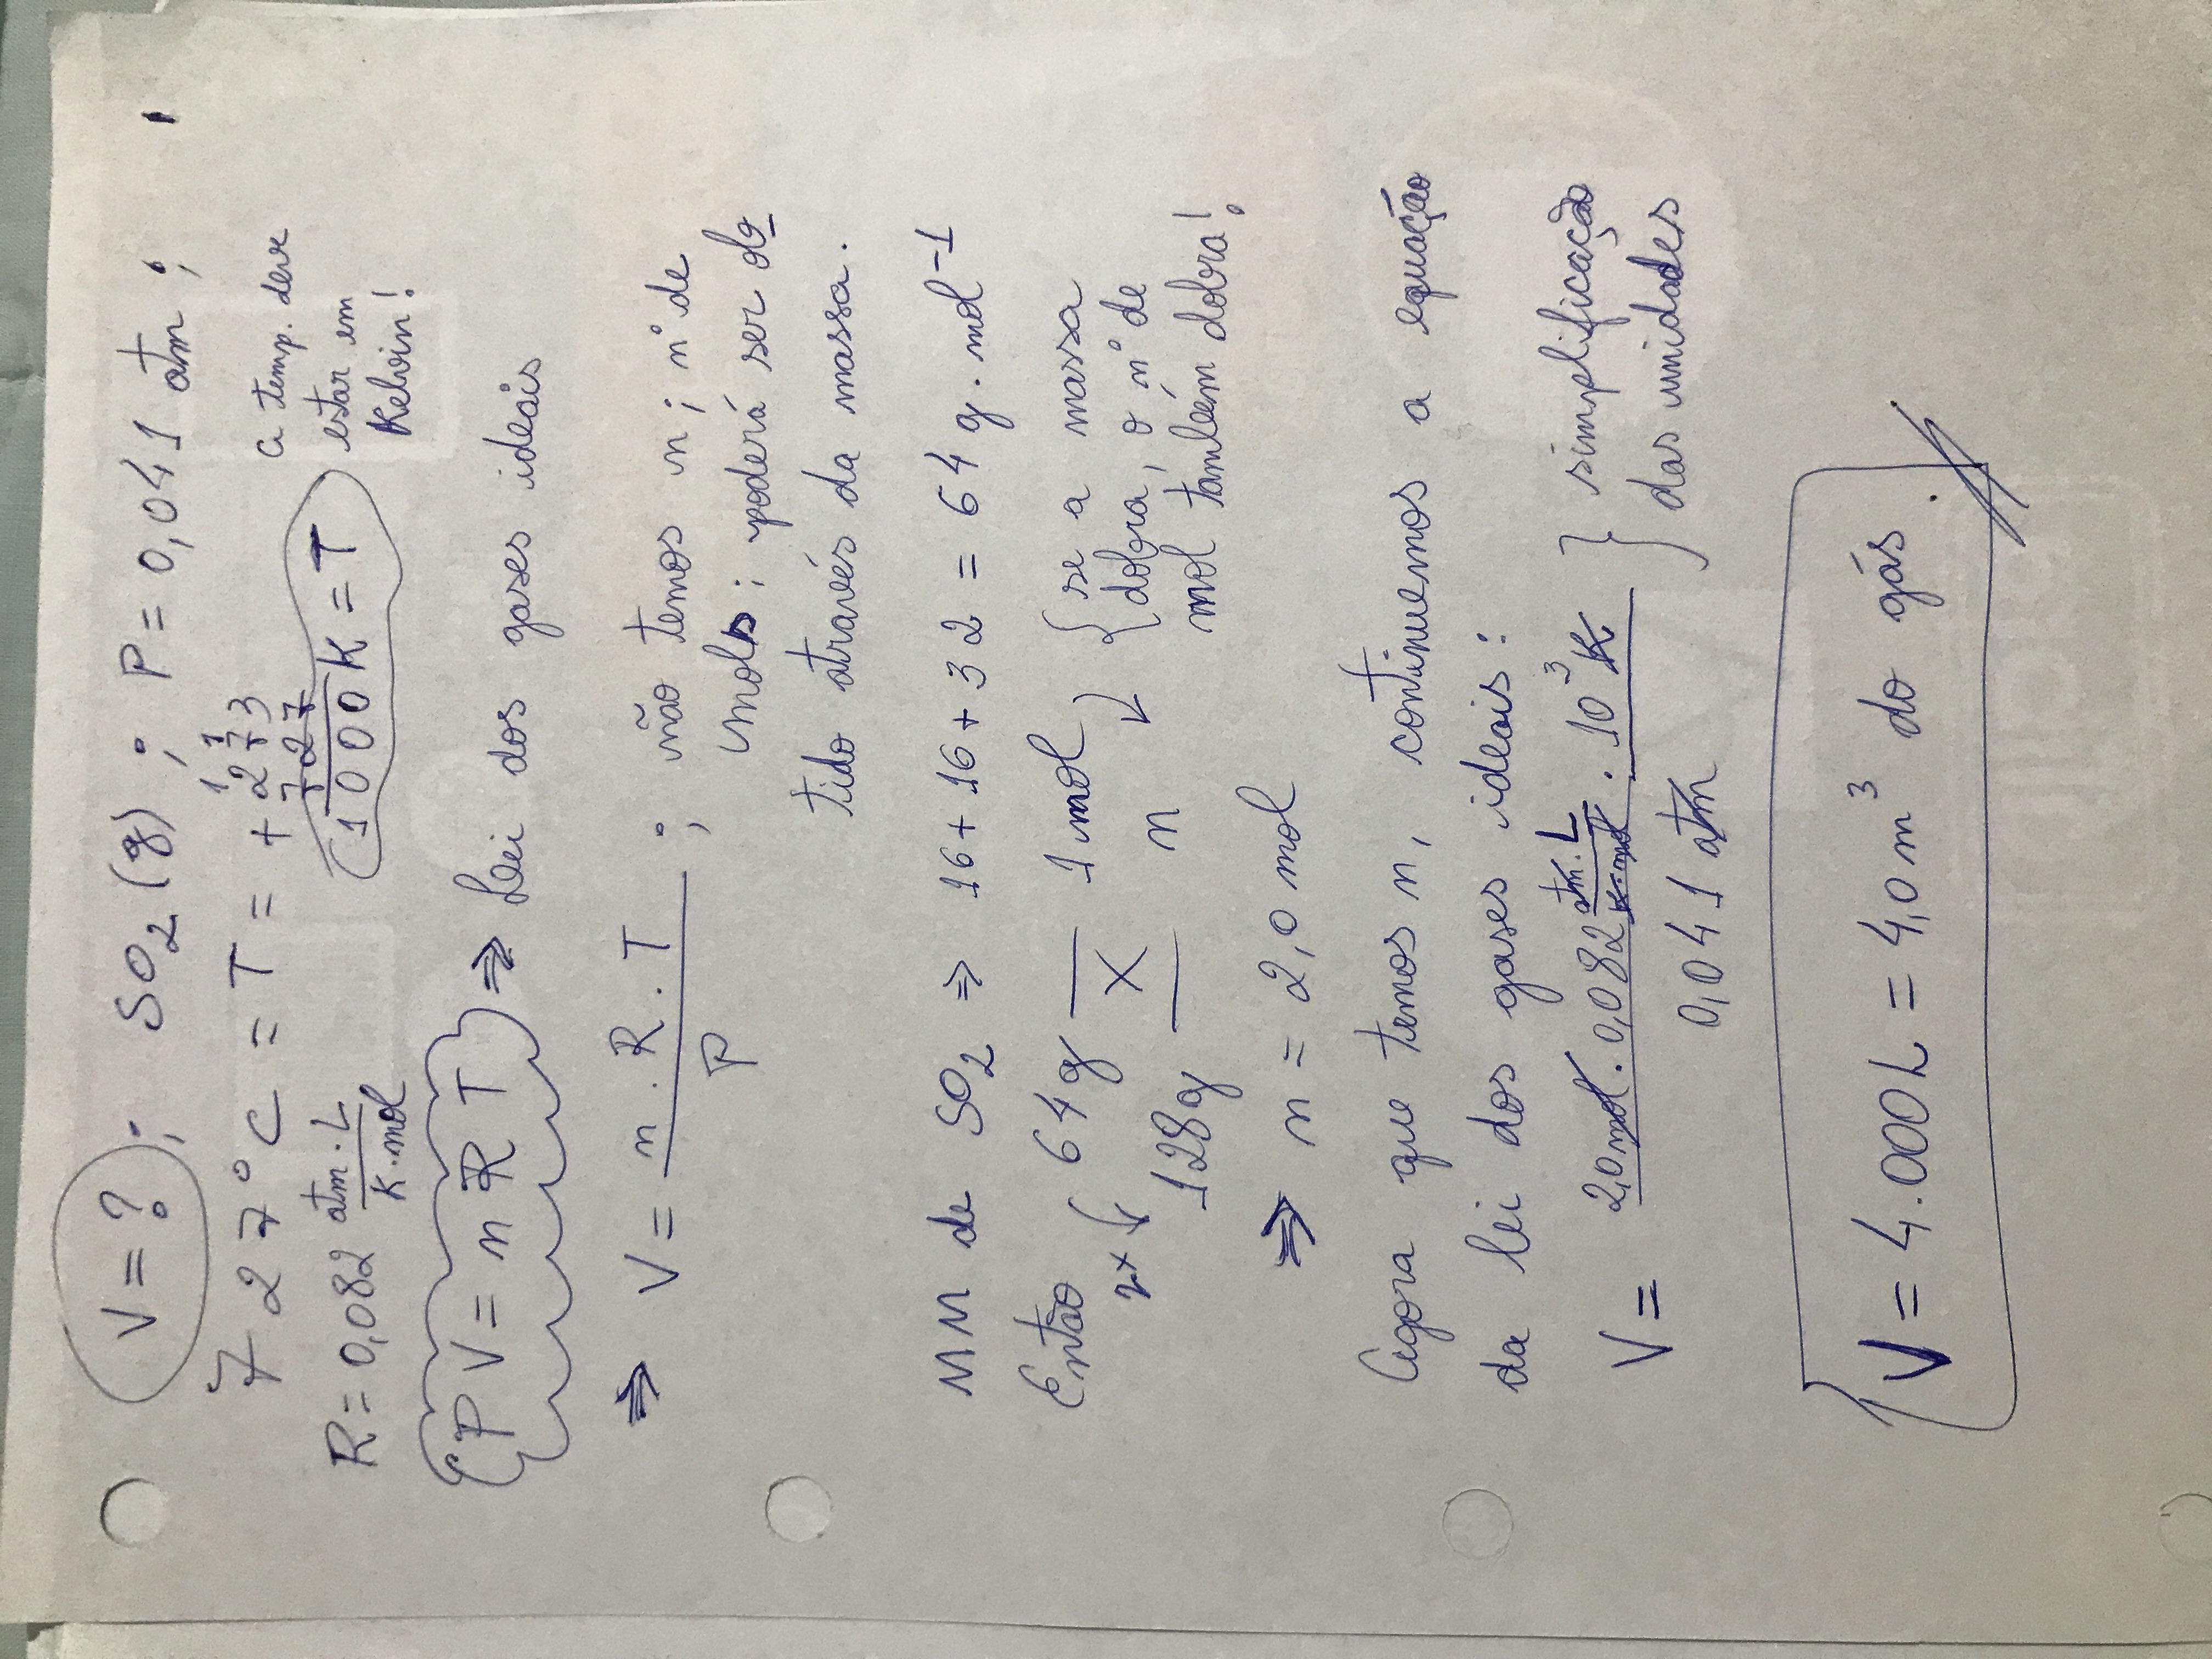 V = ? ; SO2 (g) ; P = 0,041 atm ;
727°C = T = + 273
727
1000 K = T
a temp. deve
estar em
Kelvin!
R = 0,082 atm.L / K.mol
PV = nRT ⇒ Lei dos gases ideais
⇒ V = n.R.T / P ; não temos n ; n° de
mols ; poderá ser ob
tido através da massa.
MM de SO2 ⇒ 16 + 16 + 32 = 64 g.mol-1
Então 64g — 1 mol
2x
128g — n
{ se a massa
dobra, o n° de
mol também dobra!
⇒ n = 2,0 mol
Agora que temos n, continuemos a equação
da lei dos gases ideais:
V = 2,0 mol . 0,082 atm.L / K.mol . 10^3 K
0,041 atm
} simplificação
das unidades
V = 4.000L = 4,0 m³ do gás.